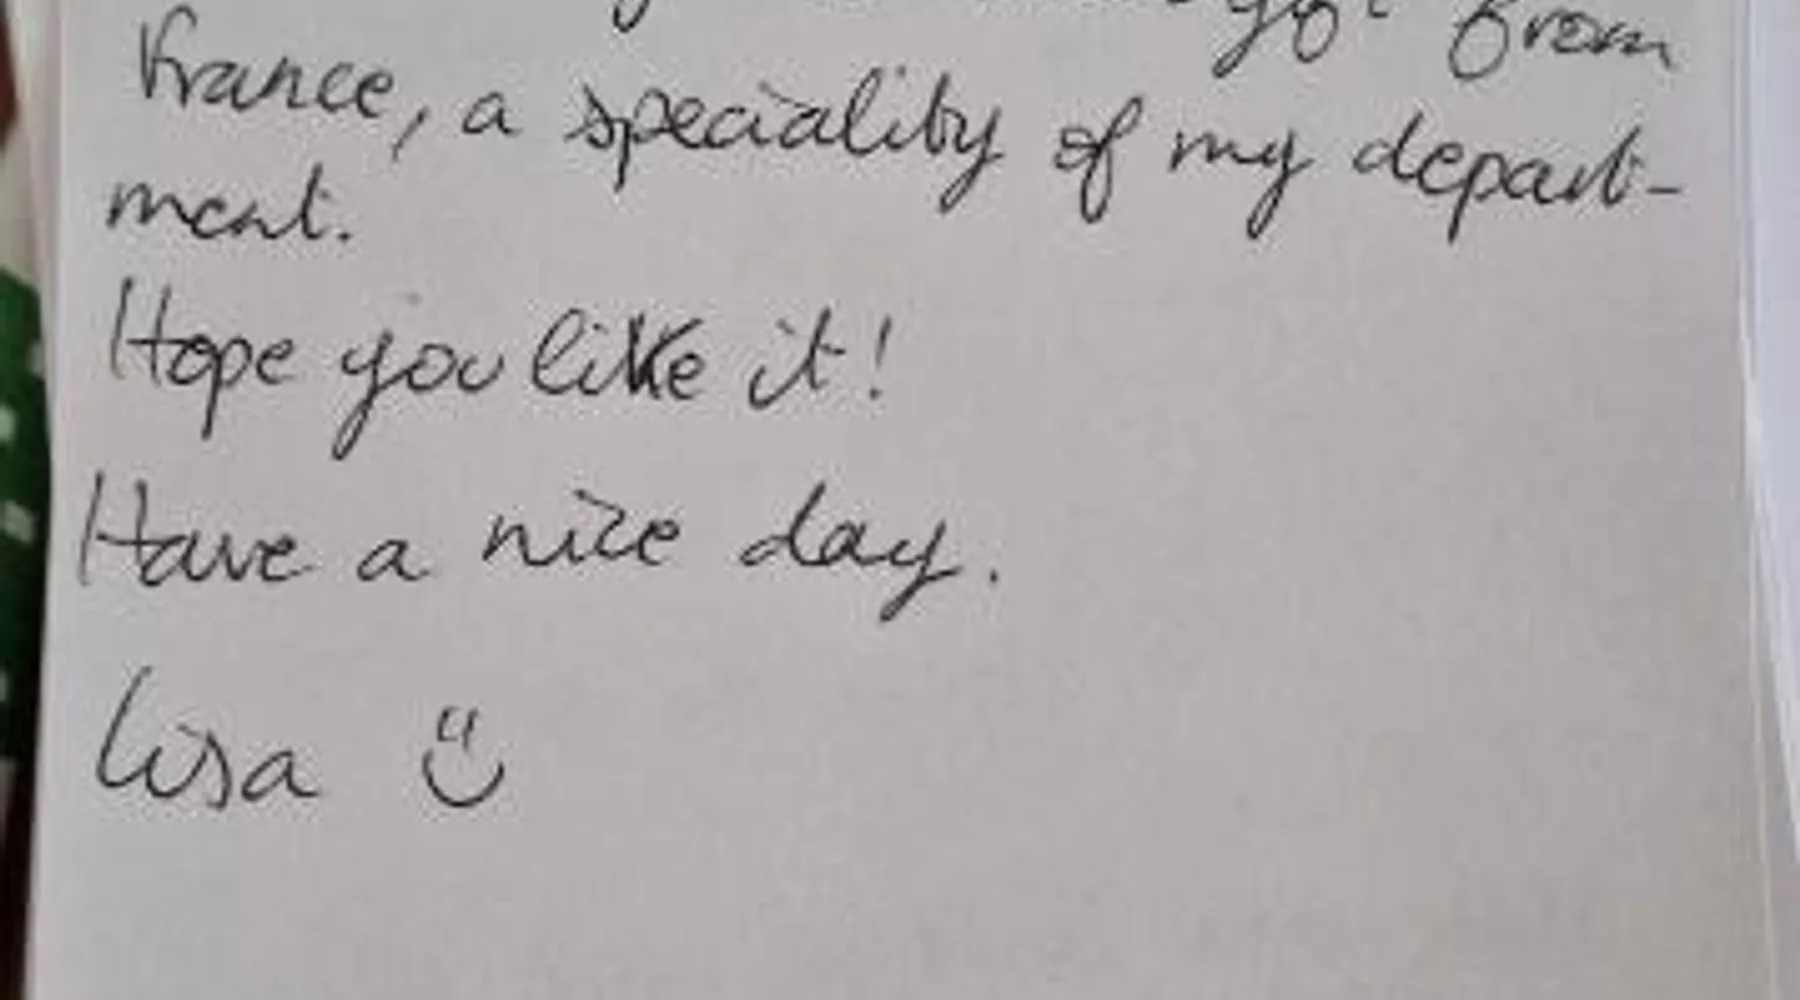 from
France, a speciality of my depart-
ment.
Hope you like it!
Have a nice day.
Lisa